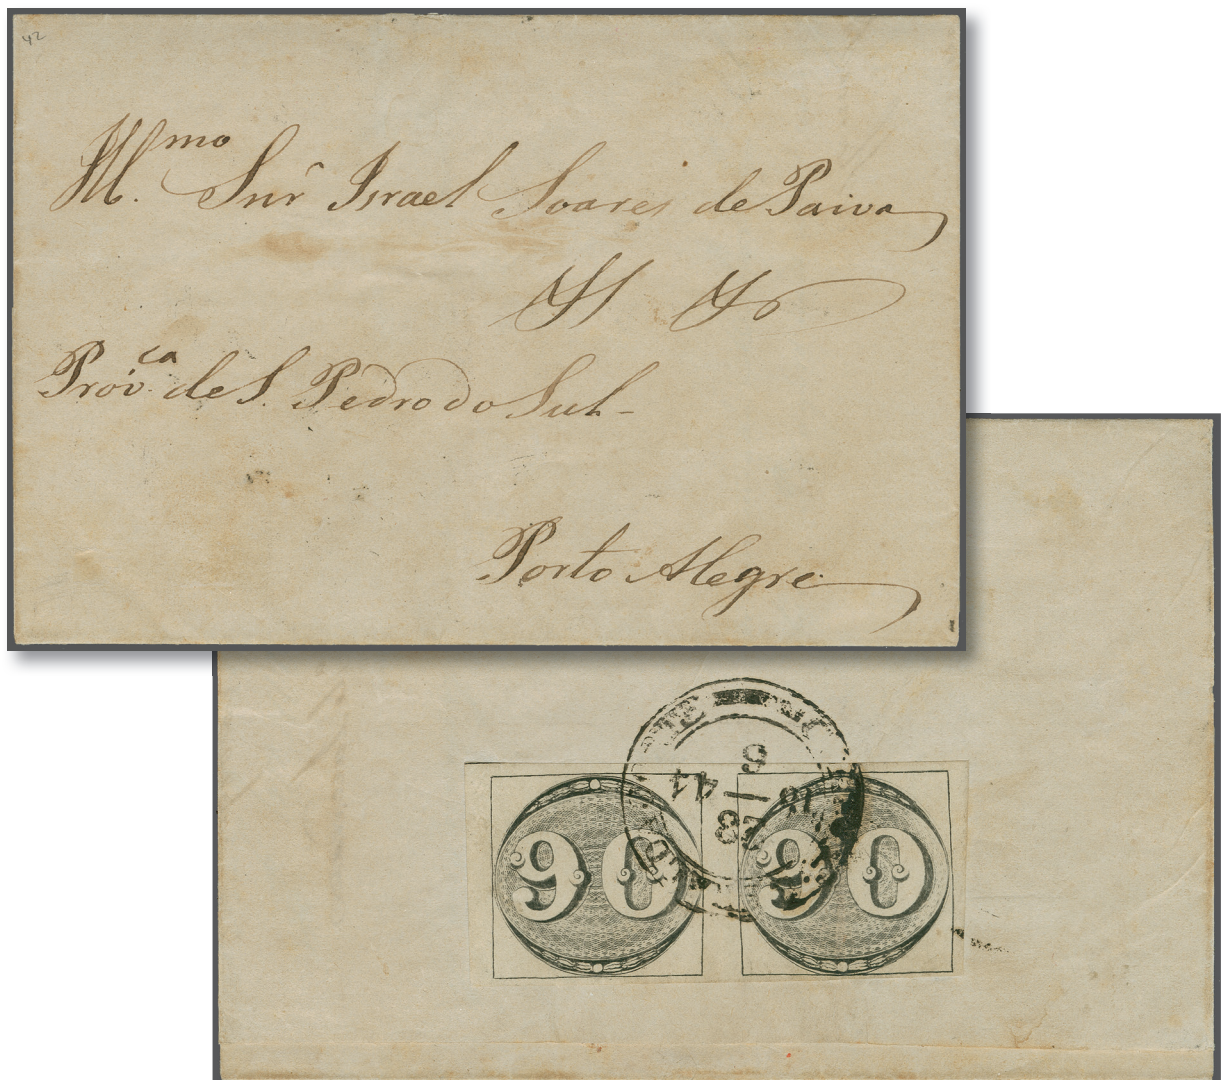 42
Illmo Snr Israel Soares de Paiva
Prov.ca de S. Pedro do Sul
Porto Alegre
90 90
6
28
18 44